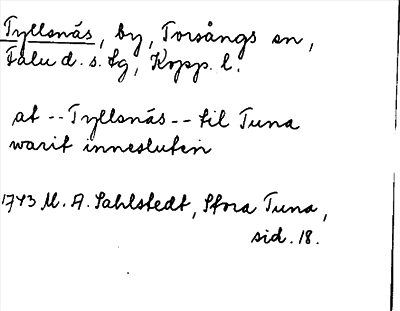 Tyllsnäs, by, Torsångs sn,
Falu d. s. lg, Kopp. l.
at -- Tyllsnäs -- til Tuna
warit innesluten
1743 M. A. Sahlstedt, Stora Tuna,
sid. 18.